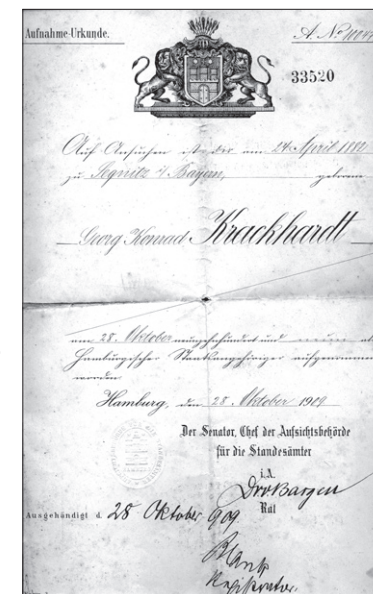 Aufnahme-Urkunde.
A. No
33520
Auf Ansuchen ist der am 24. April 1882
zu Segnitz a/ Bayern, geboren
Georg Konrad Krackhardt
am 28. Oktober neunzehnhundert und neun als
Hamburgischer Staatsangehöriger aufgenommen
worden
Hamburg, den 28. Oktober 1909
Der Senator, Chef der Aufsichtsbehörde
für die Standesämter
i.A.
Rat
Ausgehändigt d. 28 Oktober 909.
Blank
Registrator.